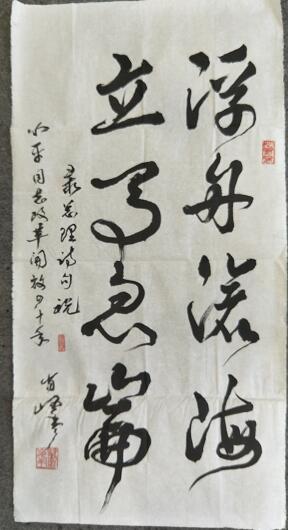 浮舟沧海
立马昆崙
录总理诗句祝
小平同志改革开放四十年